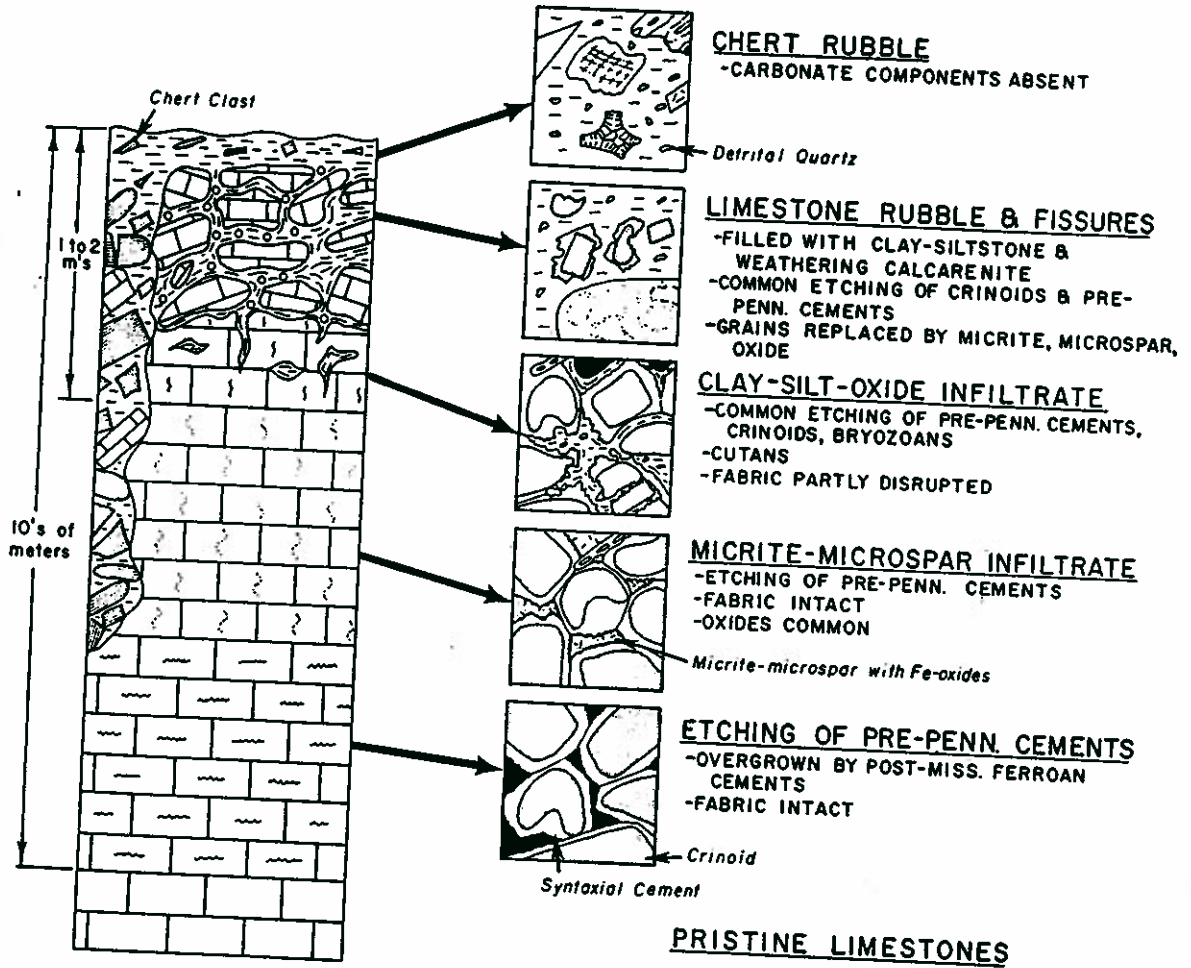 Chert Clast
1 to 2
m's
10's of
meters
CHERT RUBBLE
-CARBONATE COMPONENTS ABSENT
Detrital Quartz
LIMESTONE RUBBLE & FISSURES
-FILLED WITH CLAY-SILTSTONE &
WEATHERING CALCARENITE
-COMMON ETCHING OF CRINOIDS & PRE-
PENN. CEMENTS
-GRAINS REPLACED BY MICRITE, MICROSPAR,
OXIDE
CLAY-SILT-OXIDE INFILTRATE
-COMMON ETCHING OF PRE-PENN. CEMENTS,
CRINOIDS, BRYOZOANS
-CUTANS
-FABRIC PARTLY DISRUPTED
MICRITE-MICROSPAR INFILTRATE
-ETCHING OF PRE-PENN. CEMENTS
-FABRIC INTACT
-OXIDES COMMON
Micrite-microspar with Fe-oxides
ETCHING OF PRE-PENN. CEMENTS
-OVERGROWN BY POST-MISS. FERROAN
CEMENTS
-FABRIC INTACT
Crinoid
Syntaxial Cement
PRISTINE LIMESTONES